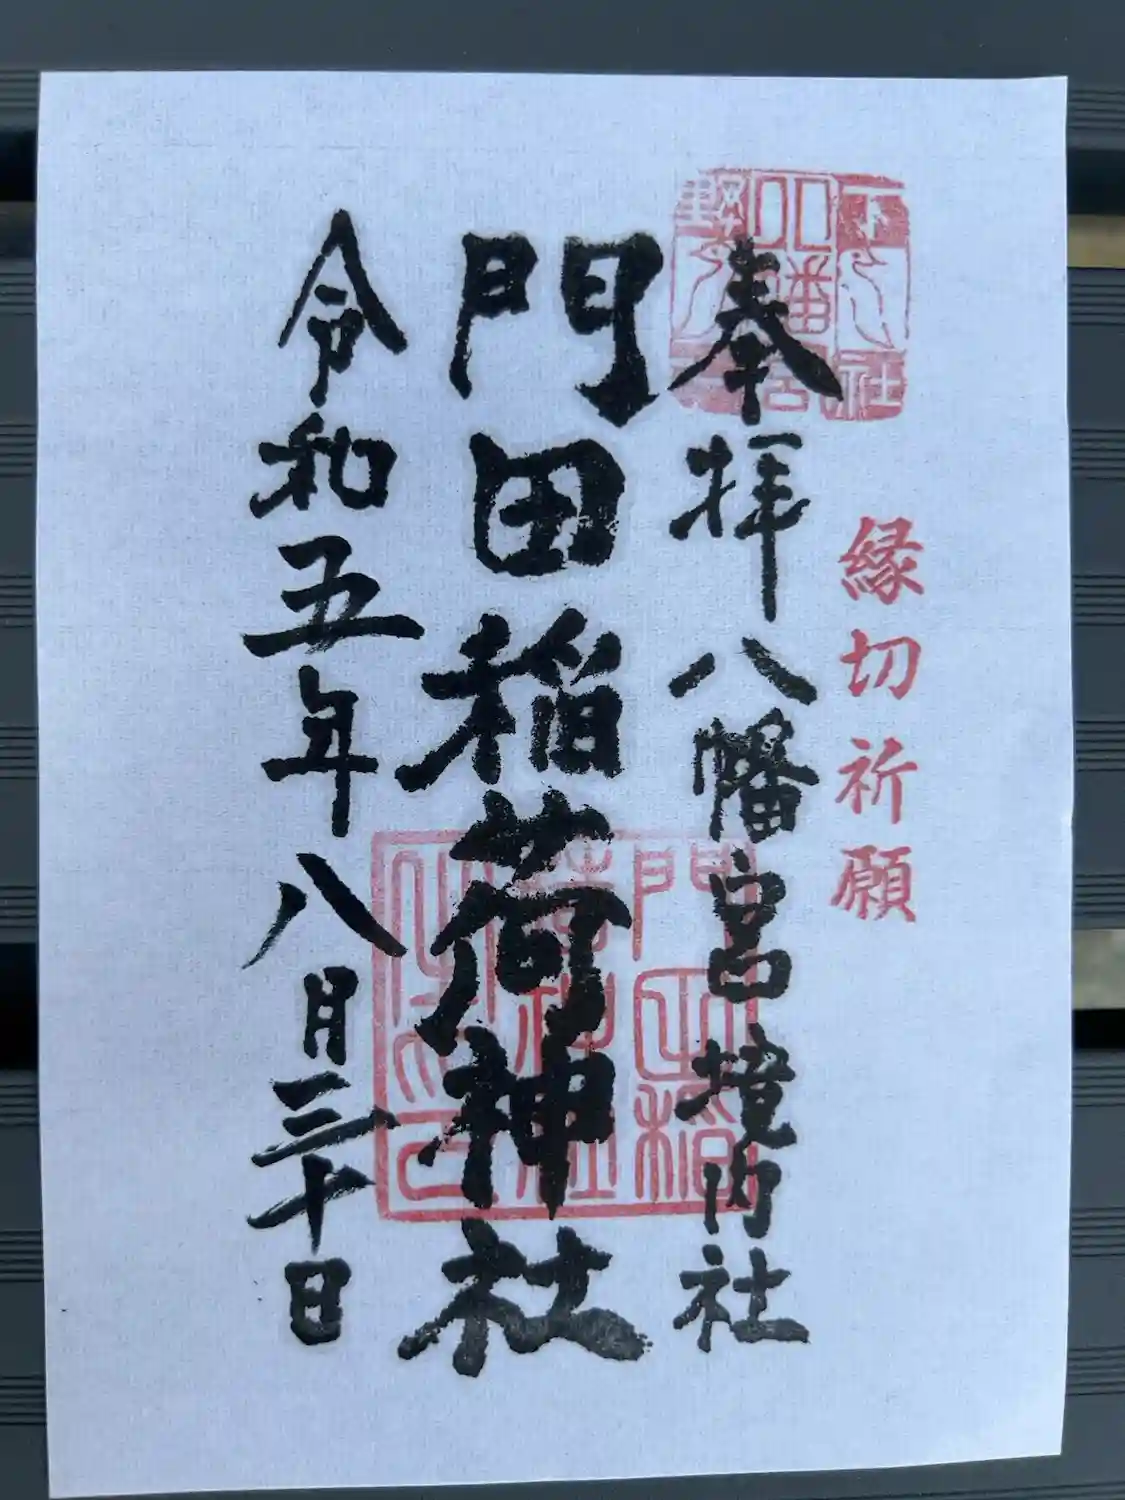 縁切祈願
奉拝八幡宮境内社
門田稲荷神社
令和五年八月三十日
下野國一社八幡宮
門田稲荷神社